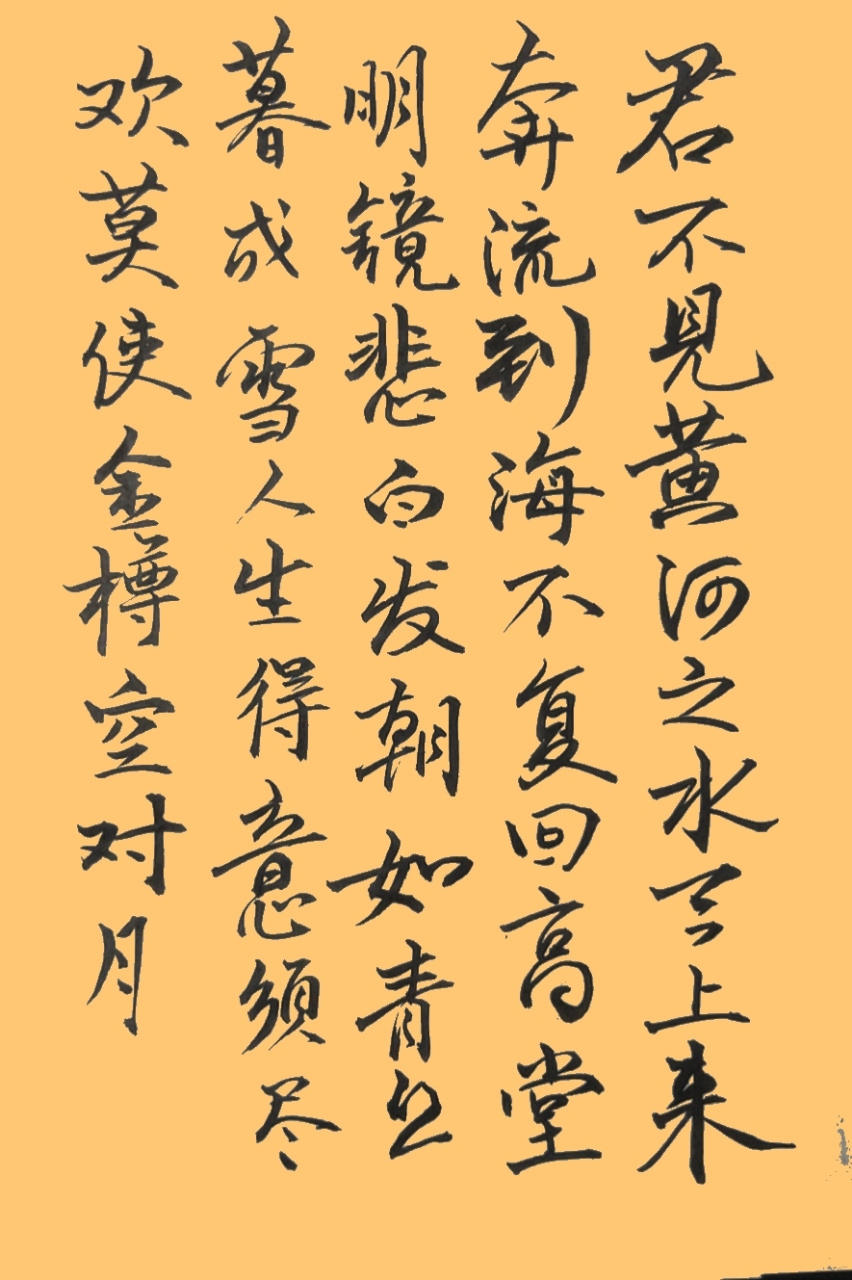 君不見黄河之水天上来
奔流到海不复回高堂
明镜悲白发朝如青丝
暮成雪人生得意須尽
欢莫使金樽空对月